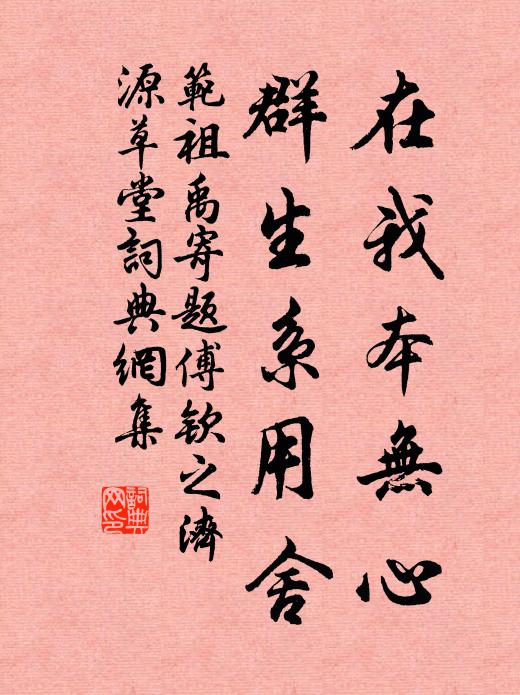 在我本無心
群生系用舍
範祖禹寄題傅欽之濟
源草堂詞典網集
詞典
网印